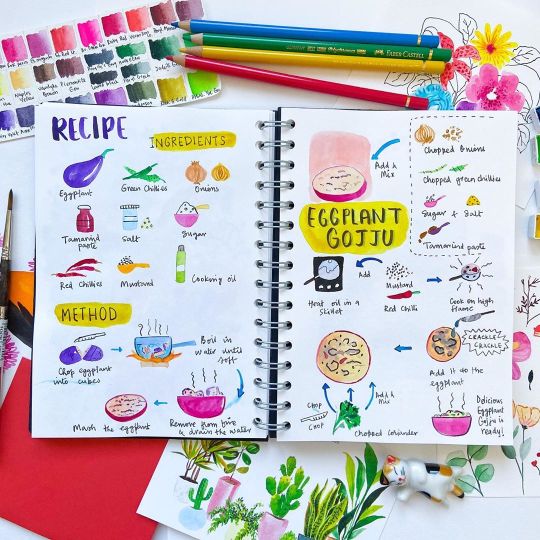 RECIPE
INGREDIENTS
Eggplant
Green Chillies
Onions
Tamarind
paste
Salt
Sugar
Red Chillies
Mustard
Cooking oil
METHOD
Chop eggplant
into cubes
Boil in
water until
soft
Remove from fire
& drain the water
Mash the eggplant
Add &
Mix
Chopped Onions
Chopped green chillies
Sugar & Salt
Tamarind paste
EGGPLANT
GOJJU
Heat oil in a
skillet
Add
Mustard
Red Chilli
Cook on high
flame
CRACKLE
CRACKLE
Add it to the
eggplant
Chop
Chop
Chopped coriander
Add &
Mix
Delicious
Eggplant
Gojju is
ready!
FABER-CASTELL